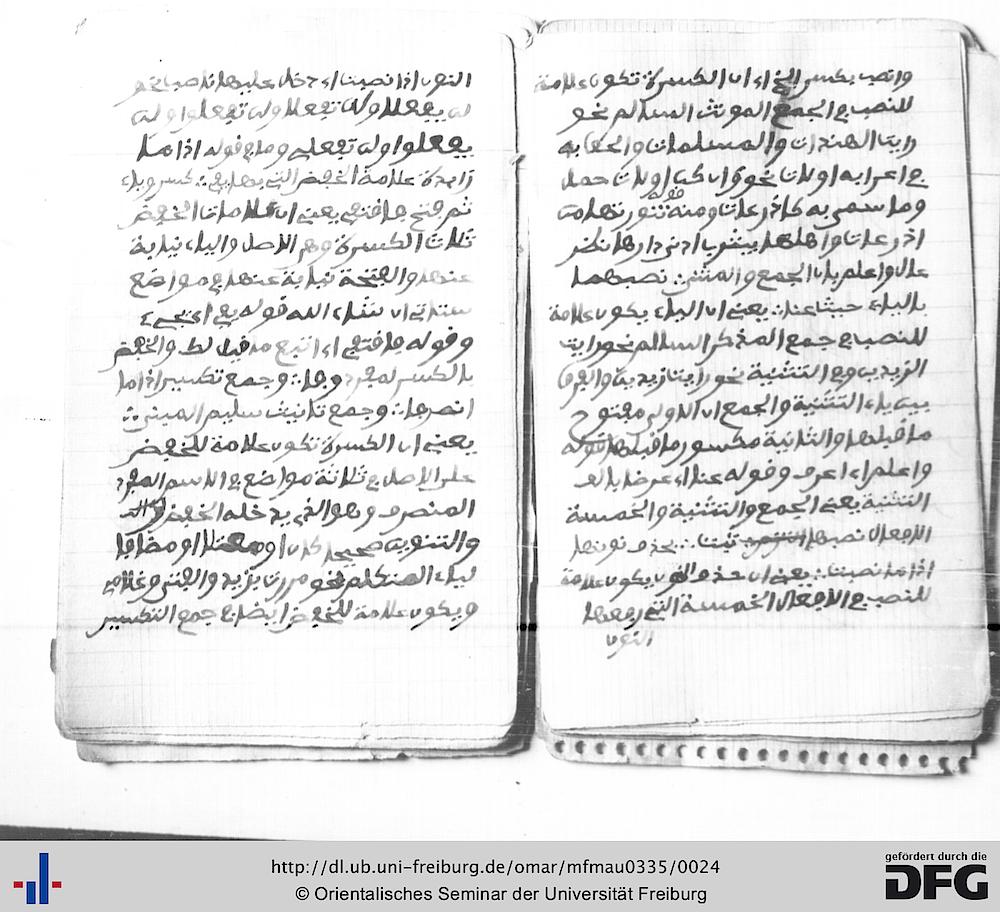 وانصب بكسر الخ اي ان الكسرة تكون علامة
للنصب في الجمع المونث السالم نحو
رايت الهندات والمسلمات والحق به
في اعرابه اولات نحو وان كن اولات حمل
وما سمي به كاذرعات ومنه قوله تنورتها من
اذرعات واهلها بيثرب ادنى دارها نظر
عال واعلم بان الجمع والمثنى نصبهما
بالياء حيث عنا يعني ان الياء يكون علامة
للنصب في جمع المذكر السالم نحو رايت
الزيدين وفي التثنية نحو رايت زيدين والفرق
بين ياء التثنية والجمع ان الاولى مفتوح
ما قبلها والثانية مكسور ما قبلها قوله
واعلم اي اعرف وقوله عنا اي عرض بالف
التثنية يعني الجمع والتثنية والخمسة
الافعال نصبها ثبت بحذف نونها
اذا ما نصبت يعني ان حذف النون يكون علامة
للنصب في الافعال الخمسة التي رفعها
النون
النون اذا نصبت اي دخل عليها ناصب نحو
لن يفعلا ولن تفعلا ولن تفعلوا ولن
يفعلوا ولن تفعلي وما في قوله اذا ما
زايدة علامة الخفض التي بها يفي كسر وياء
ثم فتح فاقتفي يعني ان علامات الخفض
ثلاث الكسرة وهي الاصل والياء نيابة
عنها والفتحة نيابة عنها في مواضع
ستاتي ان شاء الله قوله يفي اي يجيء
وقوله فاقتفي اي اتبع ما قيل لك والخفض
بالكسر لمفرد وفا وجمع تكسير اذا ما
انصرفا وجمع تانيث سليم المبنى
يعني ان الكسرة تكون علامة للخفض
على الاصل في ثلاثة مواضع في الاسم المفرد
المنصرف وهو الذي يدخله الخفض
والتنوين صحيحا كان او معتلا او مضافا
لياء المتكلم نحو مررت بزيد والفتى وغلامي
ويكون علامة للخفض ايضا في جمع التكسير
http://dl.ub.uni-freiburg.de/omar/mfmau0335/0024
© Orientalisches Seminar der Universität Freiburg
gefördert durch die
DFG